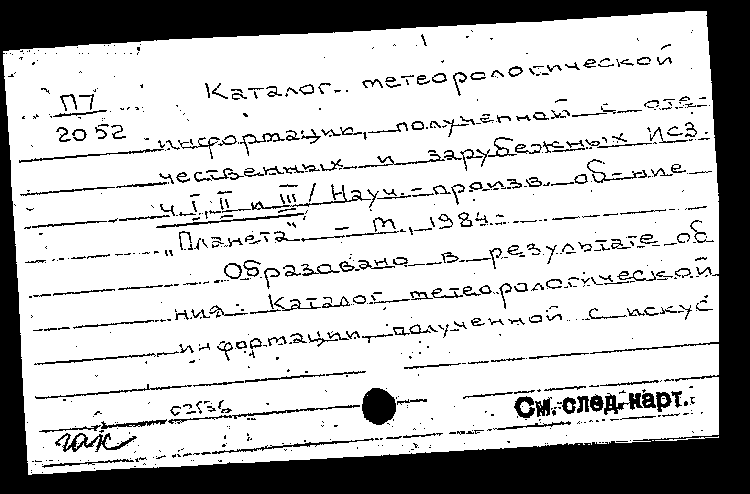 Каталог метеорологической
П7
2052
информации, полученной с оте-
чественных и зарубежных ИСЗ.
Ч. I, II и III / Науч.-произв. об-ние
„Планета". - М., 1984-
Образовано в результате об
ния: Каталог метеорологической
информации, полученной с искус
См. след. карт.